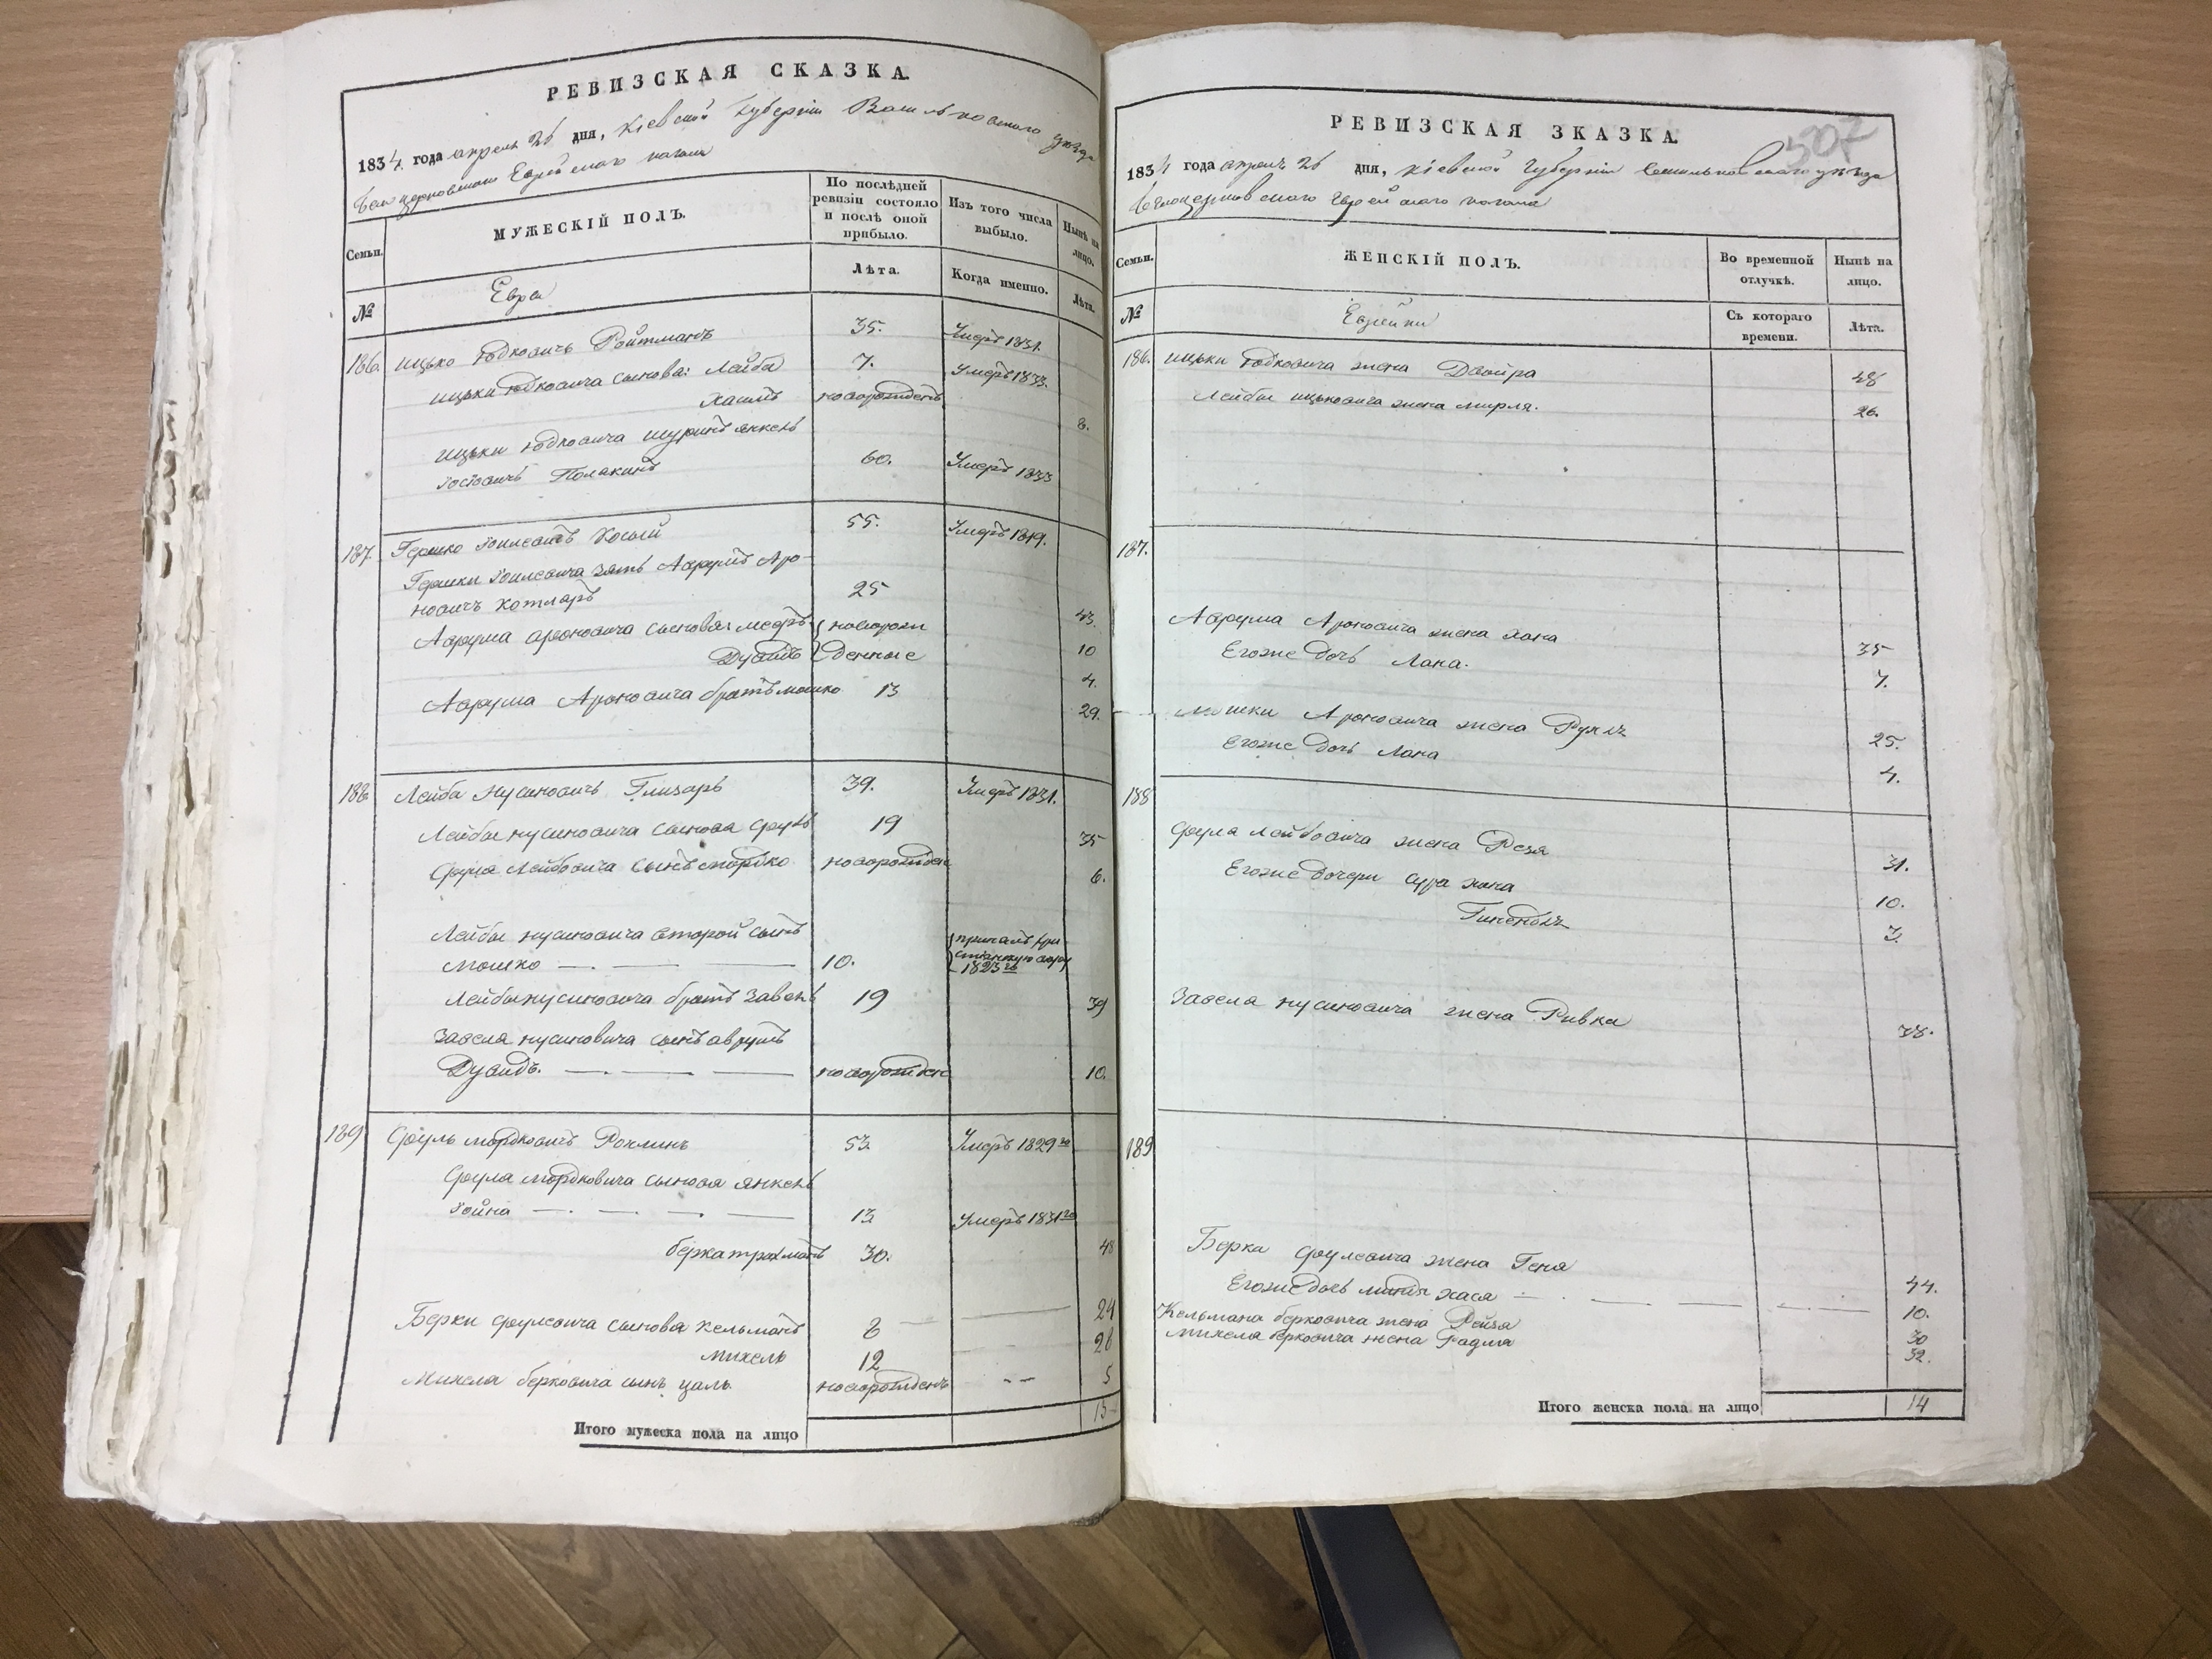 РЕВИЗСКАЯ СКАЗКА.
1834 года апреля 26 дня, Кіевской Губерніи Васильковского уезда
Белоцерковского Еврейского кагала
Семьи.
МУЖЕСКІЙ ПОЛЪ.
По послѣдней ревизіи состояло и послѣ оной прибыло.
Изъ того числа выбыло.
Нынѣ на лицо.
№
Евреи
Лѣта.
Когда именно.
Лѣта.
186. Ицько Юдковичъ Ройтманъ 35. Умеръ 1831.
Ицьки Юдковича сыновья: Лейба 7. Умеръ 1833.
Хаимъ новорожденъ 8.
Ицьки Юдковича шуринъ Янкель
Іосіовичъ Полякинъ 60. Умеръ 1833
187. Гершко Іоилевичъ Косый 55. Умеръ 1819.
Гершки Іоилевича зять Аврумъ Аро-
новичъ Котляръ 25 43.
Аврума Ароновича сыновья: Мееръ новорож 10
Дувидъ денные 4.
Аврума Ароновича братъ Мошко 13 29.
188 Лейба Нусиновичъ Глизаръ 39. Умеръ 1831.
Лейбы Нусиновича сыновья Сруль 19 35
Срула Лейбовича сынъ Мордко новорожден 6.
Лейбы Нусиновича второй сынъ
Мошко — . — — 10. принялъ хри-
стіанскую веру
1823 го
Лейбы Нусиновича братъ Завель 19 39
Завеля Нусиновича сынъ Аврумъ
Дувидъ. — . — . — новорожден 10.
189 Сруль Мордковичъ Рохлинъ 53 Умеръ 1829 го
Срула Мордковича сыновья Янкель
Іойна — . — . — . — 13 Умеръ 1831 го
Берка трахманъ 30. 48
Берки Срулевича сыновья Кельманъ 8 24
Михель 12 28
Михеля Берковича сынъ Цаль. новорожденъ -- 5
Итого мужеска пола на лицо 15
РЕВИЗСКАЯ ЗКАЗКА.
507
1834 года апреля 26 дня, Кіевской Губерніи Васильковского уезда
Белоцерковского Еврейского кагала
Семьи.
ЖЕНСКІЙ ПОЛЪ.
Во временной отлучкѣ.
Нынѣ на лицо.
№
Еврейки
Съ котораго времени.
Лѣта.
186. Ицьки Юдковича жена Двойра 48
Лейбы Ицьковича жена Мирля. 26.
187.
Аврума Ароновича жена Хана 35
Егоже дочь Лана. 7.
Мошки Ароновича жена Рухля 25.
Егоже дочь Лана 4.
188 Срула Лейбовича жена Рейзя 31.
Егоже дочери Сура Хана 10.
3.
Завеля Нусиновича жена Ривка 38.
189
Берка Срулевича жена Геня 44.
Егоже дочь Миндя Хася — . — — — — 10.
Кельмана Берковича жена Рейзя 30
Михеля Берковича жена Фадля 32.
Итого женска пола на лицо 14